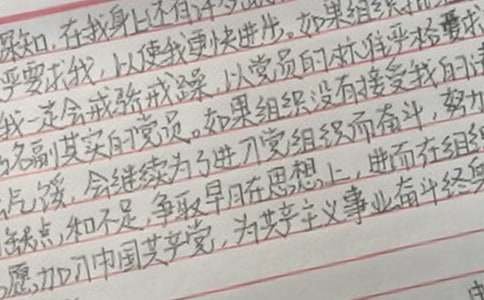 深知,在我身上还有许多
严要求我,以使我更快进步。如果组织
我一定会戒骄戒躁,以党员的标准严格要求
名副其实的党员。如果组织没有接受我的请
气馁,会继续为了进入党组织而奋斗,努力
缺点,和不足,争取早日在思想上,进而在组织
愿加入中国共产党,为共产主义事业奋斗终身